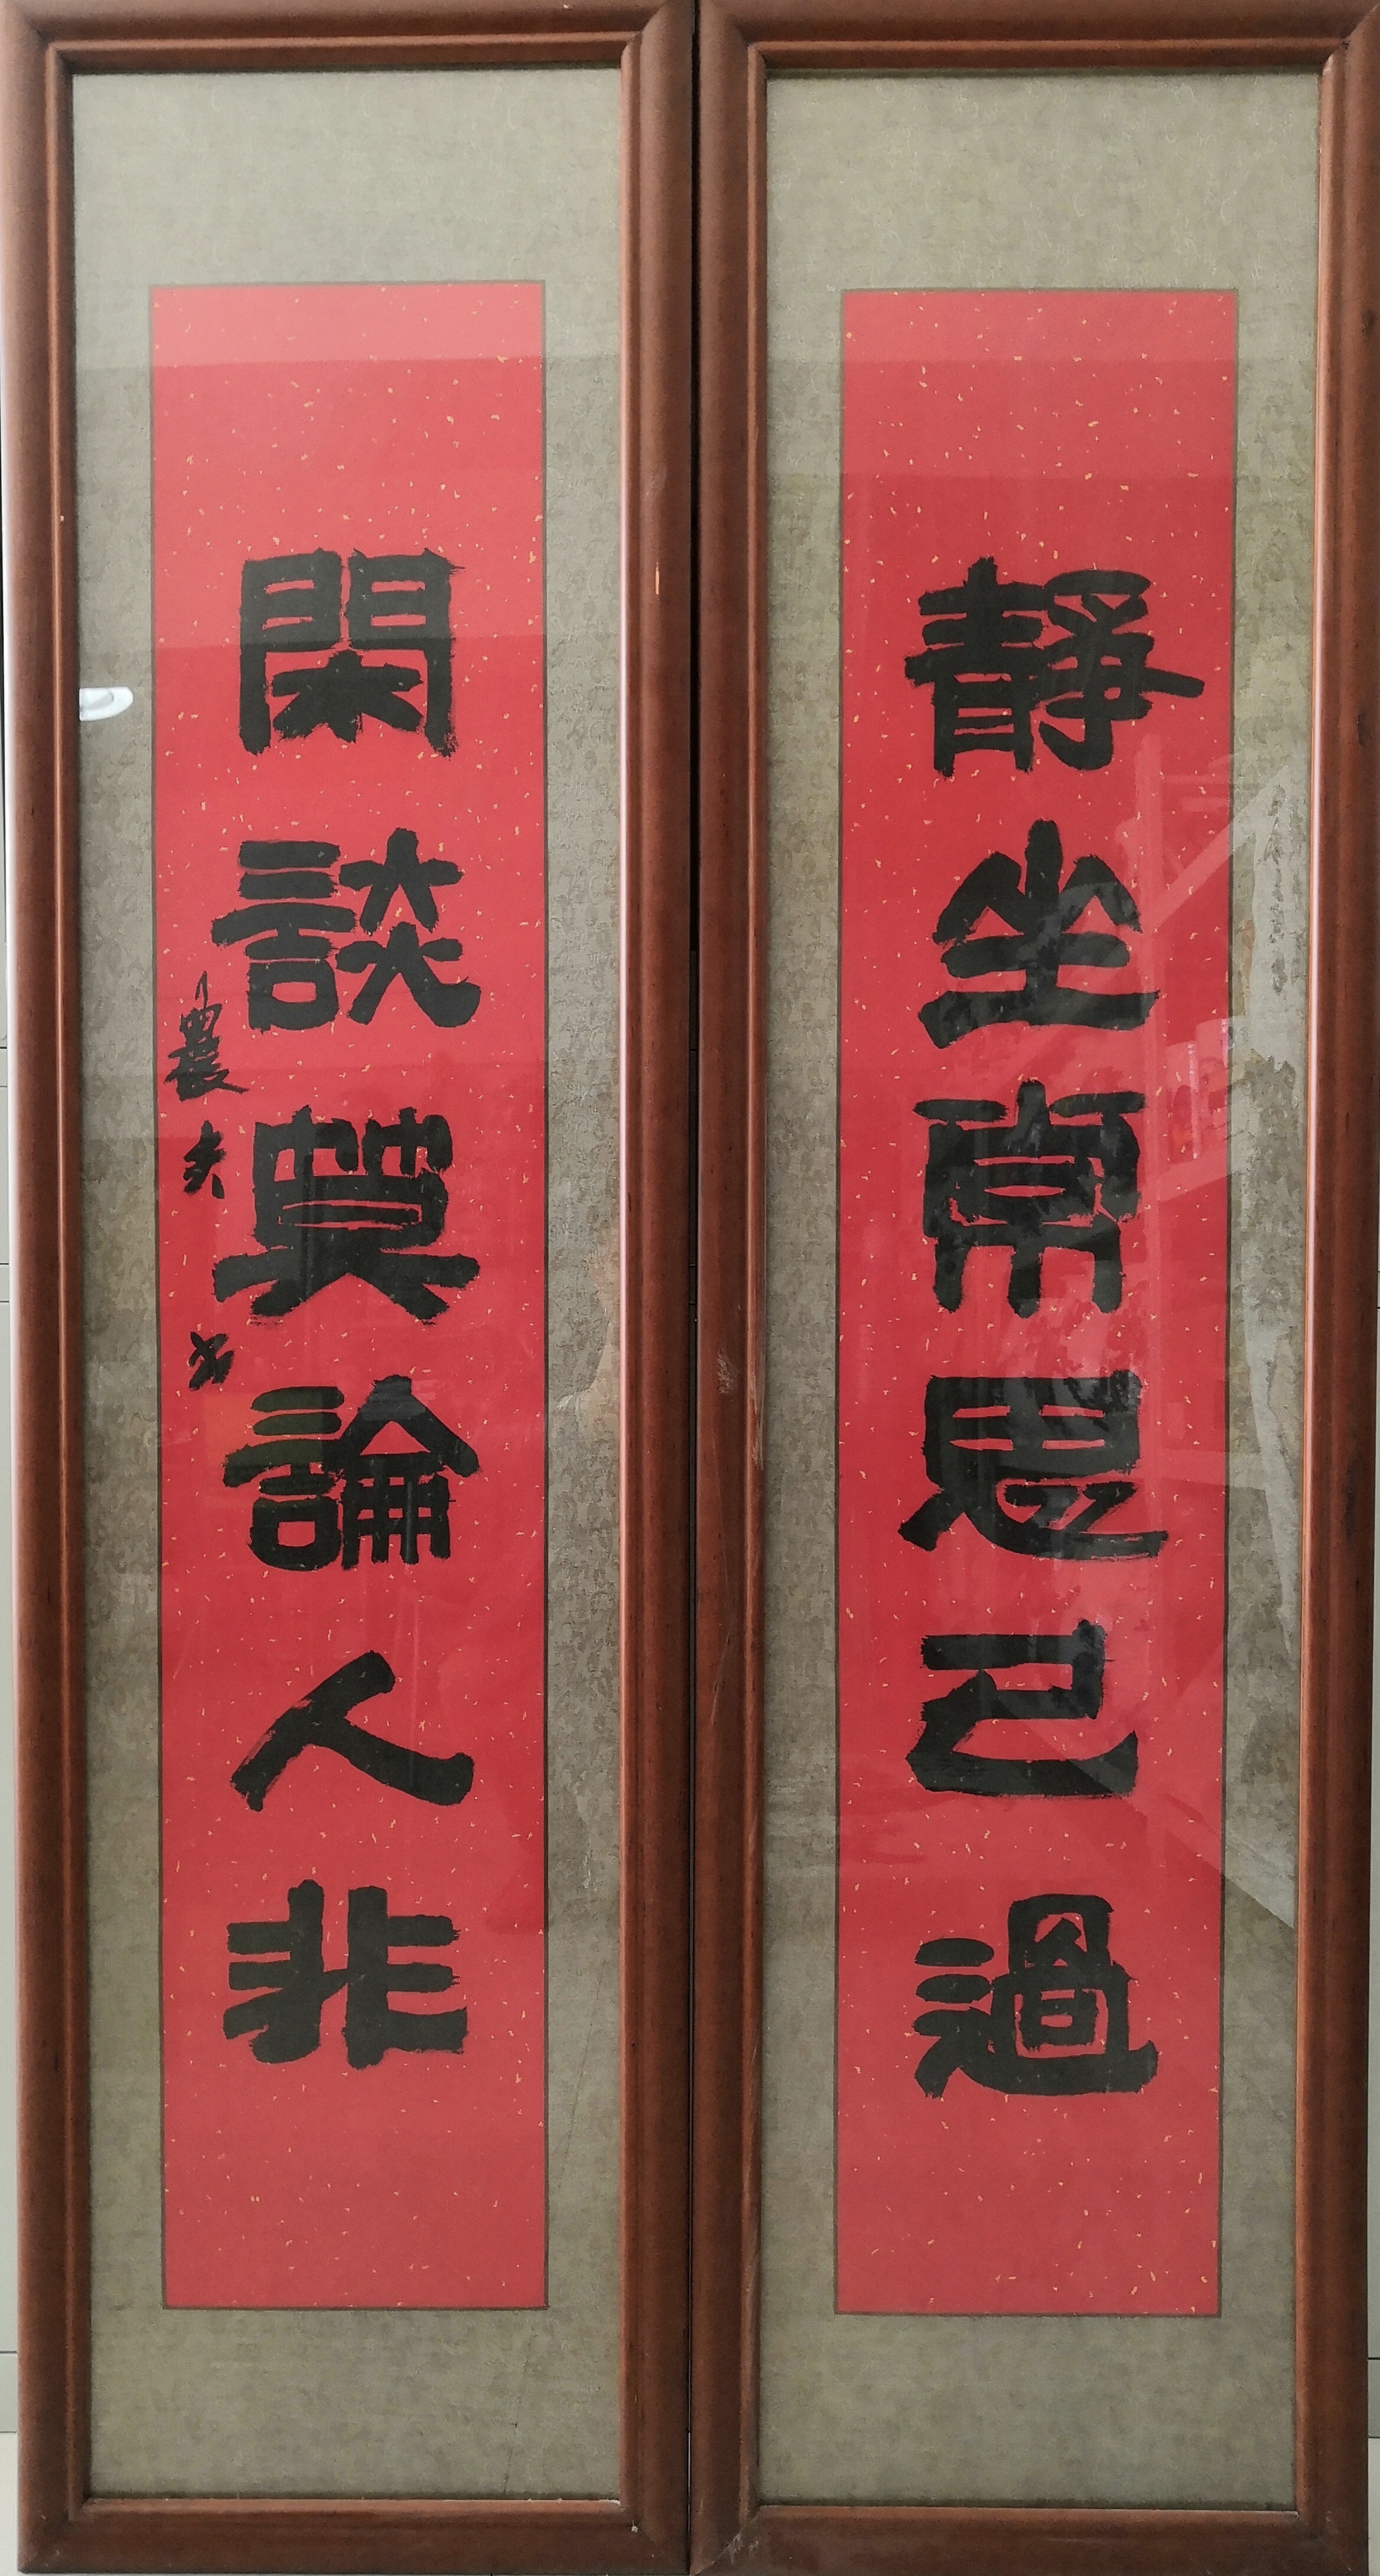 靜坐常思己過
閑談莫論人非
農夫